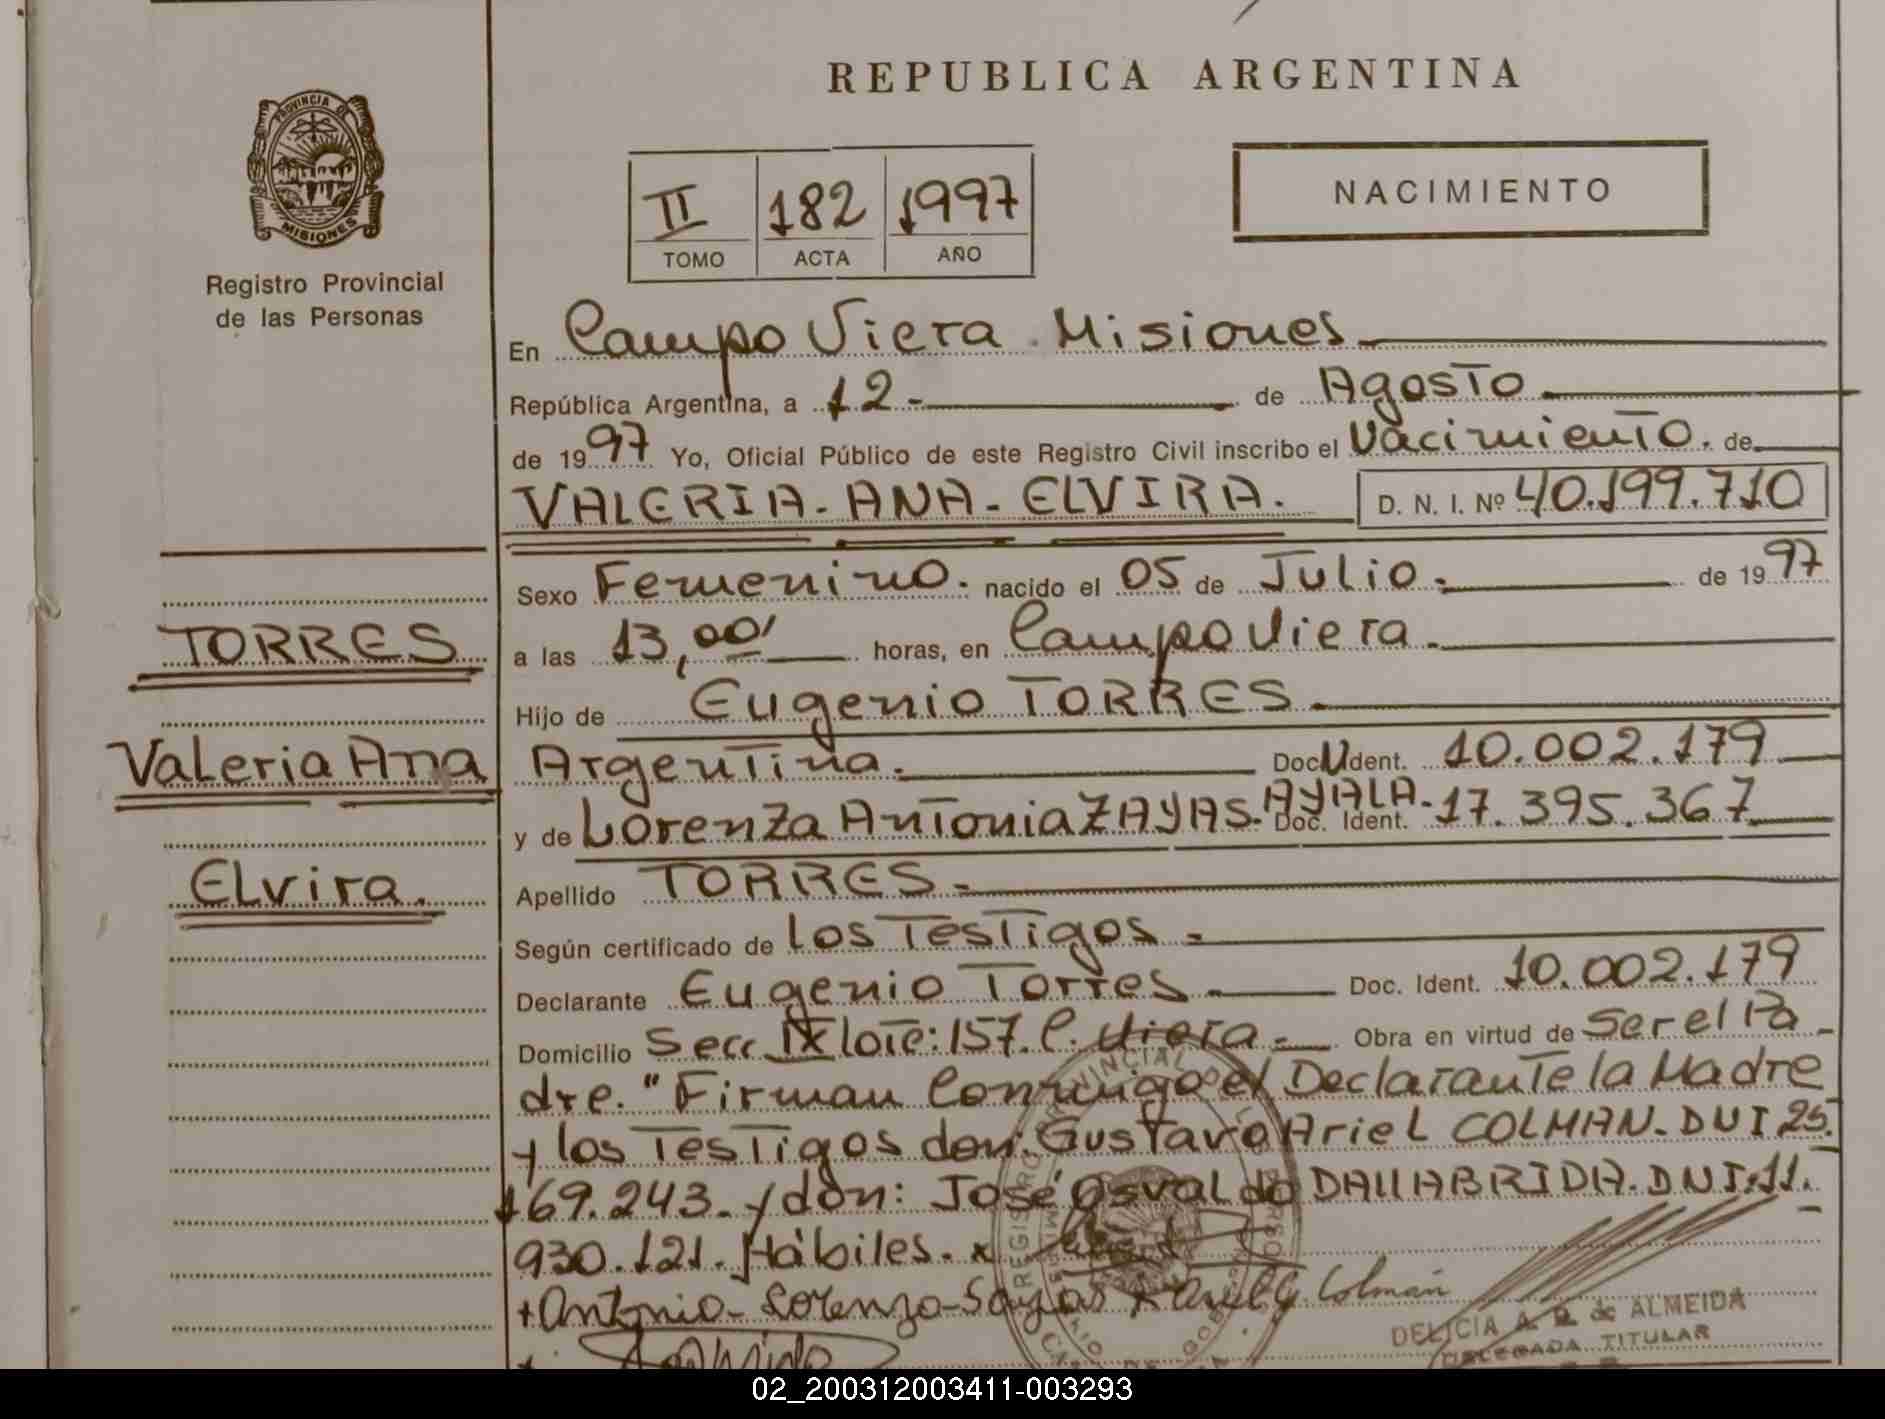 REPUBLICA ARGENTINA
PROVINCIA DE
MISIONES
Registro Provincial
de las Personas
II 182 1997
TOMO ACTA AÑO
NACIMIENTO
En Campo Viera. Misiones
República Argentina, a 12 de Agosto
de 1997 Yo, Oficial Público de este Registro Civil inscribo el Nacimiento. de
VALERIA - ANA - ELVIRA. D. N. I. Nº 40.199.710
Sexo Femenino. nacido el 05 de Julio. de 1997
TORRES
a las 13,00' horas, en Campo Viera.
Hijo de Eugenio TORRES
Valeria Ana
Argentina. Doc. Ident. 10.002.179
y de Lorenza Antonia ZAYAS. AYALA. Doc. Ident. 17.395.367
Elvira.
Apellido TORRES
Según certificado de los Testigos
Declarante Eugenio Torres Doc. Ident. 10.002.179
Domicilio Secc IX lote: 157. C. Viera Obra en virtud de ser el Pa
dre. "Firman Conmigo el Declarante la Madre
y los Testigos don: Gustavo Ariel COLMAN. DNI 25.
169.243. y don: José Osvaldo DALLABRIDA. DNI: 11.
930.121. Hábiles. x
+ Antonio - Lorenza - Sayas x Ariel G. Colmán
DELICIA A. R. de ALMEIDA
DELEGADA TITULAR
02_200312003411-003293